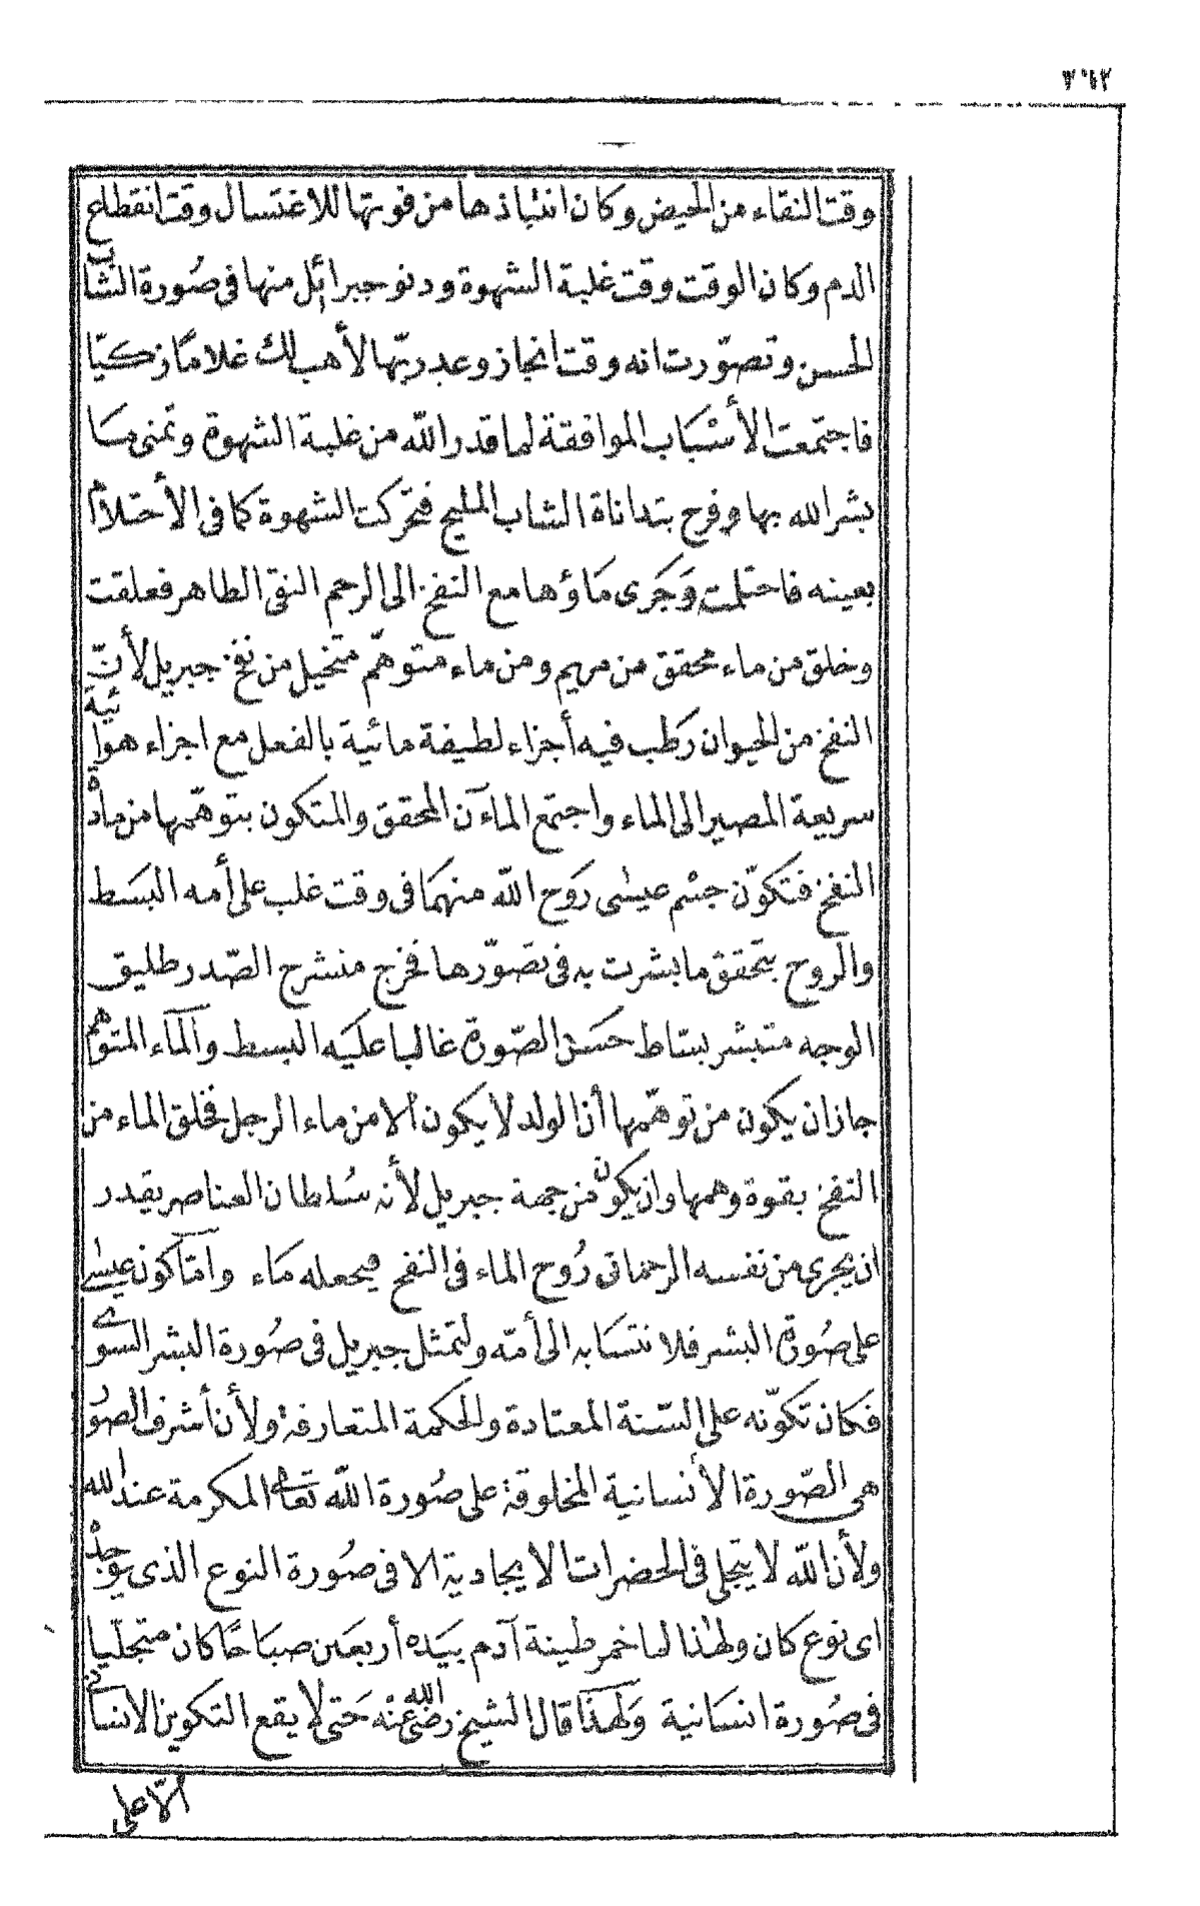 ٣٦٢
وقت النقاء من الحيض وكان انتباذها من قومها للاغتسال وقت انقطاع
الدم وكان الوقت وقت غلبة الشهوة ودنو جبرائل منها فى صُورة الشاب
الحسن وتصوّرت انه وقت انجاز وعد ربّها لأهب لك غلامًا زكيّا
فاجتمعت الأسْبَاب الموافقة لما قدر الله من غلبة الشهوة وتمنى مَا
بشر الله بها وفرح بتداناة الشاب المليح فتحركت الشهوة كما فى الأحتلام
بعينه فاحتلمت وَجَرى مَاؤها مع النفخ الى الرحم النقى الطاهر فعلقت
وخلق من ماء محقق من مريم ومن ماء متوهّم متخيل من نفخ جبريل لأنّ
النفخ من الحيوان رَطب فيه أجزاء لطيفة مائية بالفعل مع اجزاء هوائية
سريعة المصير الى الماء واجتمع الماآن المحقق والمتكون بتوهّمها من مادة
النفخ فتكوّن جسْم عيسٰى رَوح الله منهمَا فى وقت غلب على أمه البَسَط
والروح بتحقق ما بشرت به فى تصَوّرها فخرج منشرح الصّدر طليق
الوجه متبشر بساط حسَن الصّورة غالبا عليَه البسط والمآء المتوهم
جاز ان يكون من توهّمها أن الولد لا يكون ألا من ماء الرجل فخلق الماء من
النفخ بقوة وهمها وان يكون من جهة جبريل لأنه سُلطان العناصر يقدر
ان يجرى من نفسه الرحمانى رُوح الماء فى النفخ فيجعله مَاء وامّا كون عيسٰى
على صُورة البشر فلانتسَابه الى أمّه ولتمثل جبريل فى صُورة البشر السوى
فكان تكوّنه على السّنة المعتادة والحكمة المتعارفة ولأن أشرف الصُور
هى الصّورة الأنسانية المخلوقة على صُورة الله تعالى المكرمة عند الله
ولأن الله لا يتجلى فى الحضرات الايجادية الا فى صُورة النوع الذى يوجده
اى نوع كان ولهٰذا لما خمر طينة آدم بيَده أربعَين صبَاحًا كان متجلّيا
فى صُورة انسَانية ولهٰذا قال الشيخ رضى الله عنه حَتى لا يقع التكوين الانسانى
الّا على